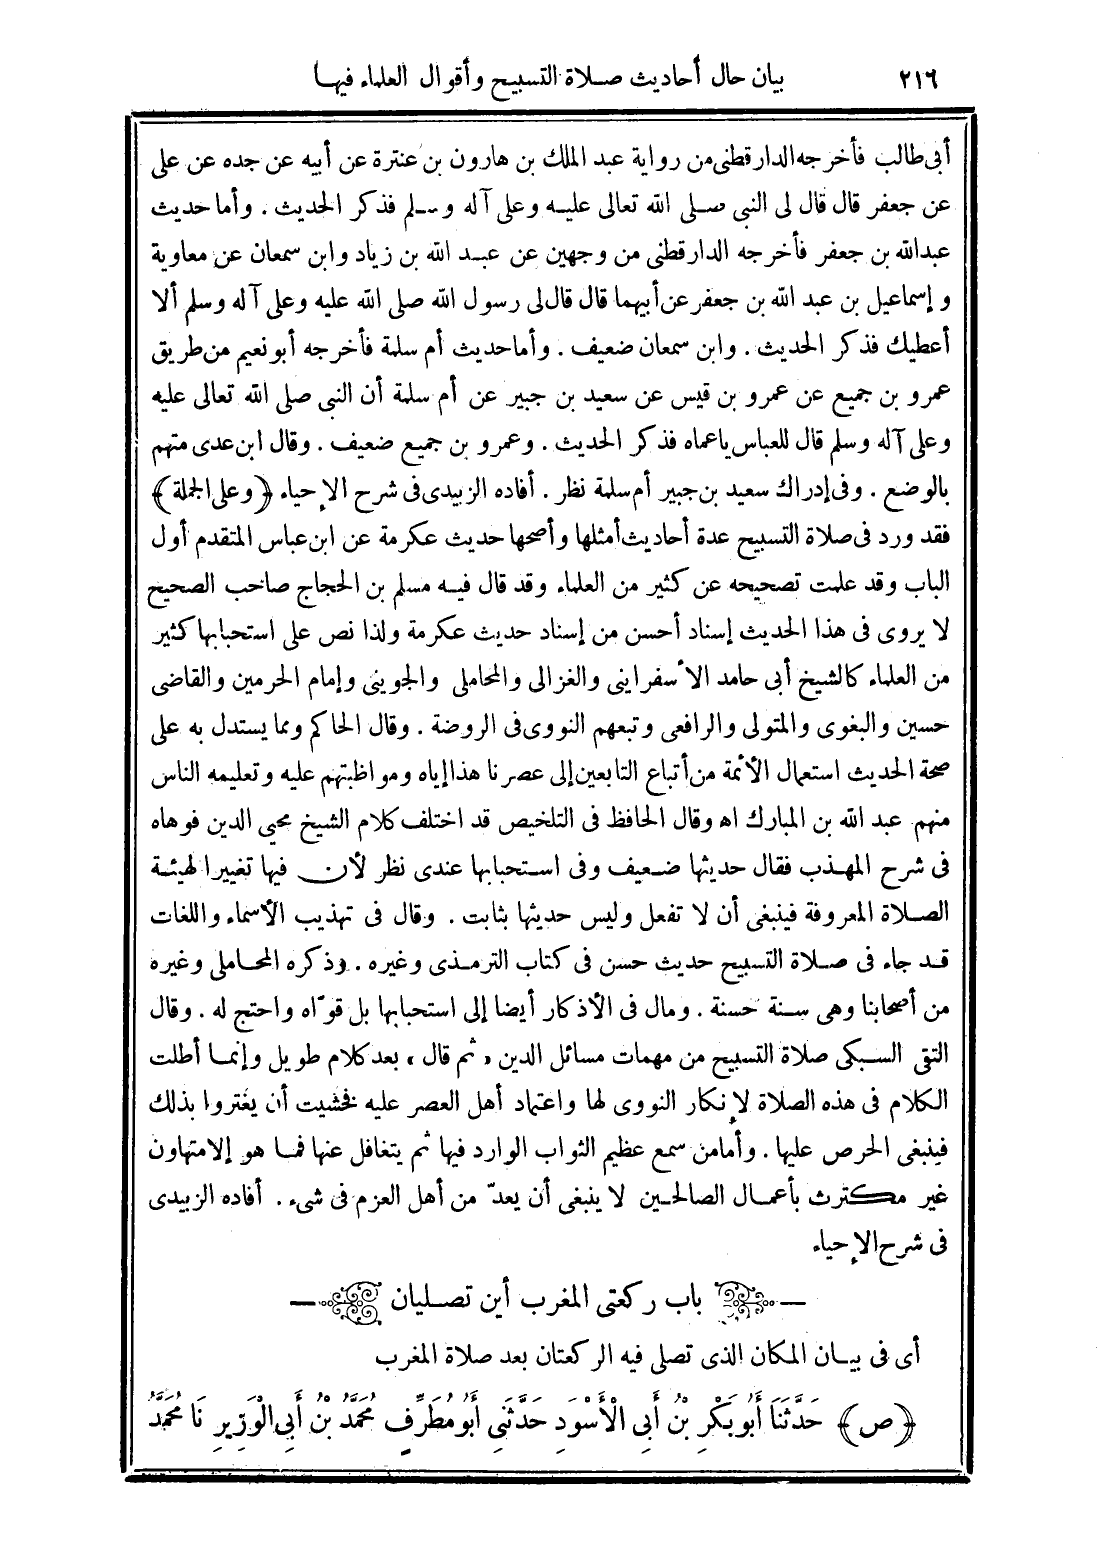 ٢١٦ بيان حال أحاديث صلاة التسبيح وأقوال العلماء فيها
أبى طالب فأخرجه الدارقطنى من رواية عبد الملك بن هارون بن عنترة عن أبيه عن جده عن على
عن جعفر قال قال لى النبى صلى الله تعالى عليه وعلى آله وسلم فذكر الحديث . وأما حديث
عبدالله بن جعفر فأخرجه الدارقطنى من وجهين عن عبد الله بن زياد وابن سمعان عن معاوية
وإسماعيل بن عبد الله بن جعفر عن أبيهما قال قال لى رسول الله صلى الله عليه وعلى آله وسلم ألا
أعطيك فذكر الحديث . وابن سمعان ضعيف . وأما حديث أم سلمة فأخرجه أبو نعيم من طريق
عمرو بن جميع عن عمرو بن قيس عن سعيد بن جبير عن أم سلمة أن النبى صلى الله تعالى عليه
وعلى آله وسلم قال للعباس ياعماه فذكر الحديث . وعمرو بن جميع ضعيف . وقال ابن عدى متهم
بالوضع . وفى إدراك سعيد بن جبير أم سلمة نظر . أفاده الزبيدى فى شرح الإحياء ﴿وعلى الجملة﴾
فقد ورد فى صلاة التسبيح عدة أحاديث أمثلها وأصحها حديث عكرمة عن ابن عباس المتقدم أول
الباب وقد علمت تصحيحه عن كثير من العلماء وقد قال فيه مسلم بن الحجاج صاحب الصحيح
لا يروى فى هذا الحديث إسناد أحسن من إسناد حديث عكرمة ولذا نص على استحبابها كثير
من العلماء كالشيخ أبى حامد الأسفراينى والغزالى والمحاملى والجوينى وإمام الحرمين والقاضى
حسين والبغوى والمتولى والرافعى وتبعهم النووى فى الروضة . وقال الحاكم ومما يستدل به على
صحة الحديث استعمال الأئمة من أتباع التابعين إلى عصرنا هذا إياه ومواظبتهم عليه وتعليمه الناس
منهم عبد الله بن المبارك اه وقال الحافظ فى التلخيص قد اختلف كلام الشيخ محيي الدين فوهاه
فى شرح المهذب فقال حديثها ضعيف وفى استحبابها عندى نظر لأن فيها تغييرا لهيئة
الصلاة المعروفة فينبغى أن لا تفعل وليس حديثها بثابت . وقال فى تهذيب الأسماء واللغات
قد جاء فى صلاة التسبيح حديث حسن فى كتاب الترمذى وغيره . وذكره المحاملى وغيره
من أصحابنا وهى سنة حسنة . ومال فى الأذكار أيضا إلى استحبابها بل قوّاه واحتج له . وقال
التقى السبكى صلاة التسبيح من مهمات مسائل الدين «ثم قال» بعد كلام طويل وإنما أطلت
الكلام فى هذه الصلاة لإنكار النووى لها واعتماد أهل العصر عليه فخشيت أن يغتروا بذلك
فينبغى الحرص عليها . وأما من سمع عظيم الثواب الوارد فيها ثم يتغافل عنها فما هو إلا متهاون
غير مكترث بأعمال الصالحين لا ينبغى أن يعدّ من أهل العزم فى شىء . أفاده الزبيدى
فى شرح الإحياء
باب ركعتى المغرب أين تصليان
أى فى بيان المكان الذى تصلى فيه الركعتان بعد صلاة المغرب
﴿ص﴾ حَدَّثَنَا أَبُو بَكْرِ بْنُ أَبِي الْأَسْوَدِ حَدَّثَنِي أَبُو مُطَرِّفٍ مُحَمَّدُ بْنُ أَبِي الْوَزِيرِ نَا مُحَمَّدُ